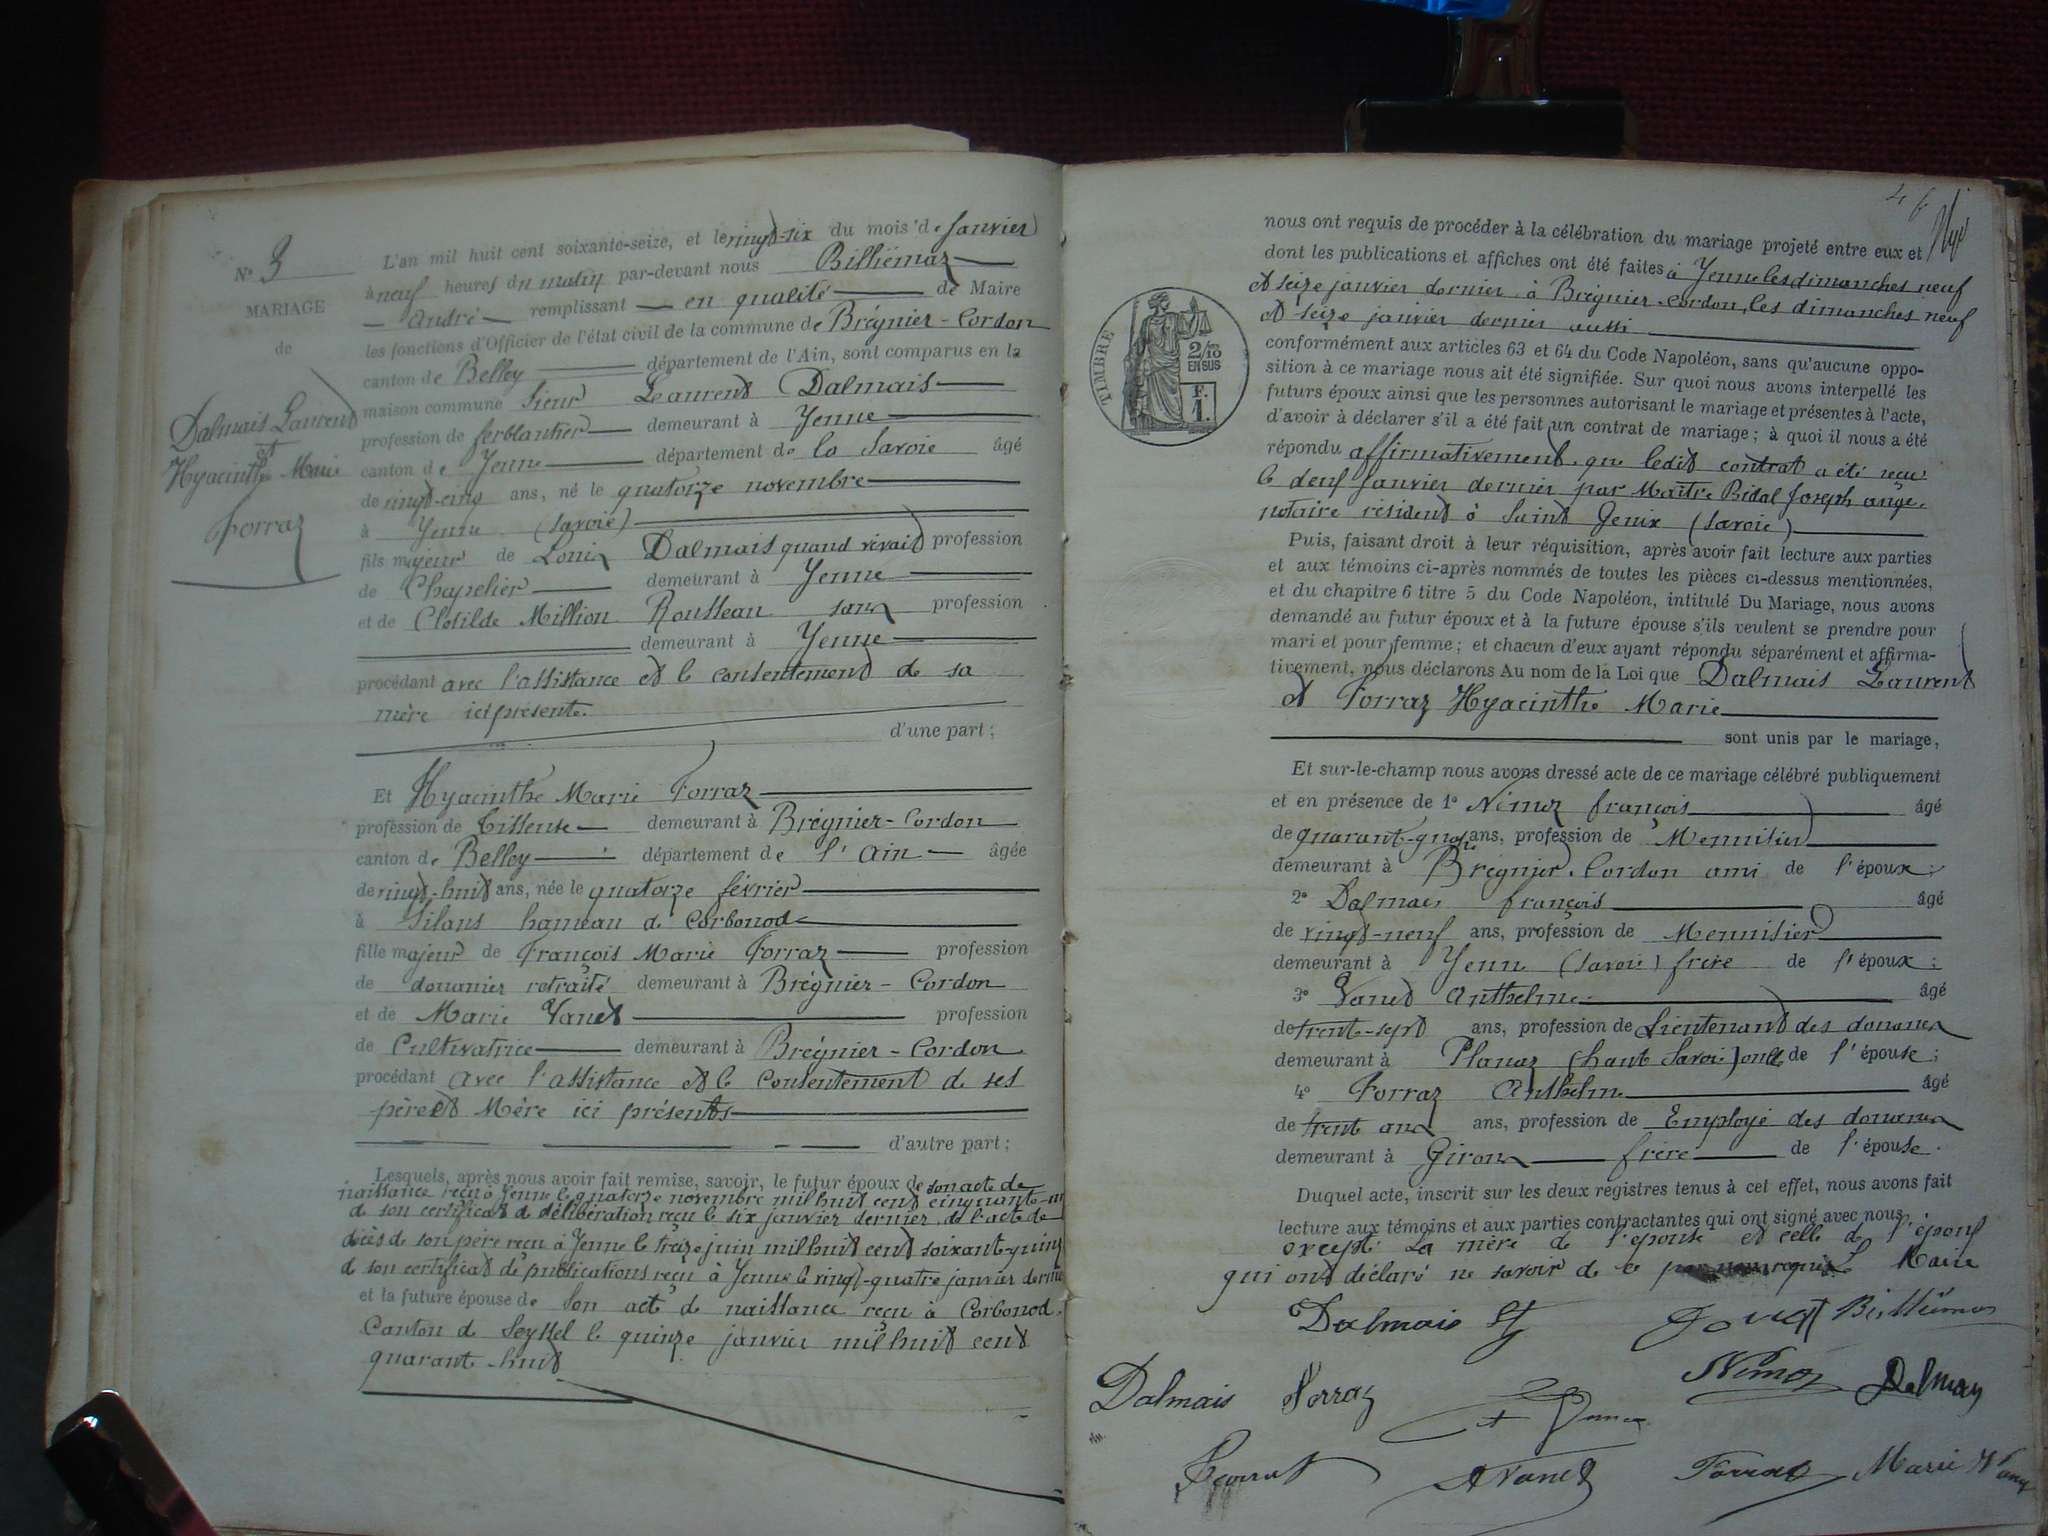 N° 3
MARIAGE
de
Dalmais Laurent
et
Hyacinthe Marie
Forraz
L'an mil huit cent soixante-seize, et le vingt-six du mois de Janvier
à neuf heures du matin par-devant nous Billiémaz
André remplissant en qualité de Maire
les fonctions d'Officier de l'état civil de la commune de Brégnier-Cordon
canton de Belley département de l'Ain, sont comparus en la
maison commune Sieur Laurent Dalmais
profession de ferblantier demeurant à Yenne
canton de Yenne département de la Savoie âgé
de vingt-cinq ans, né le quatorze novembre
à Yenne (Savoie)
fils majeur de Louis Dalmais quand vivait profession
de Chapelier demeurant à Yenne
et de Clotilde Million Rousseau sans profession
demeurant à Yenne
procédant avec l'assistance et le consentement de sa
mère ici présente.
d'une part;
Et Hyacinthe Marie Forraz
profession de Tisseuse demeurant à Brégnier-Cordon
canton de Belley département de l'Ain âgée
de vingt-huit ans, née le quatorze février
à Silans hameau de Corbonod
fille majeur de François Marie Forraz profession
de douanier retraité demeurant à Brégnier-Cordon
et de Marie Vanet profession
de Cultivatrice demeurant à Brégnier-Cordon
procédant avec l'assistance et le consentement de ses
père et Mère ici présents
d'autre part;
Lesquels, après nous avoir fait remise, savoir, le futur époux de son acte de
naissance reçu à Yenne le quatorze novembre mil huit cent cinquante
de son certificat de délibération reçu le six janvier dernier, de l'acte de
décès de son père reçu à Yenne le treize juin mil huit cent soixant-quinz
de son certificat de publications reçu à Yenne le vingt-quatre janvier dernie
et la future épouse de Son acte de naissance reçu à Corbonod.
Canton de Seyssel le quinze janvier mil huit cent
quarant-huit
46
nous ont requis de procéder à la célébration du mariage projeté entre eux et
dont les publications et affiches ont été faites à Yenne les dimanches neuf
et seize janvier dernier à Brégnier-Cordon, les dimanches neuf
et seize janvier dernier aussi
TIMBRE
2/10
EN SUS
F.
1.
conformément aux articles 63 et 64 du Code Napoléon, sans qu'aucune oppo-
sition à ce mariage nous ait été signifiée. Sur quoi nous avons interpellé les
futurs époux ainsi que les personnes autorisant le mariage et présentes à l'acte,
d'avoir à déclarer s'il a été fait un contrat de mariage; à quoi il nous a été
répondu affirmativement que ledit contrat a été reçu
le deuf Janvier dernier par Maître Bidal Joseph ange,
notaire résident à Saint Genix (Savoie)
Puis, faisant droit à leur réquisition, après avoir fait lecture aux parties
et aux témoins ci-après nommés de toutes les pièces ci-dessus mentionnées,
et du chapitre 6 titre 5 du Code Napoléon, intitulé Du Mariage, nous avons
demandé au futur époux et à la future épouse s'ils veulent se prendre pour
mari et pour femme; et chacun d'eux ayant répondu séparément et affirma-
tivement, nous déclarons Au nom de la Loi que Dalmais Laurent
et Forraz Hyacinthe Marie
sont unis par le mariage,
Et sur-le-champ nous avons dressé acte de ce mariage célébré publiquement
et en présence de 1° Nimoz françois âgé
de quarant-quatre ans, profession de Menuisier
demeurant à Brégnier-Cordon ami de l'époux;
2° Dalmais françois âgé
de vingt-neuf ans, profession de Menuisier
demeurant à Yenn (Savoie) frère de l'époux;
3° Vanet Anthelme âgé
de trente-sept ans, profession de Lieutenant des douanes
demeurant à Planaz (haut Savoie) oncle de l'épouse;
4° Forraz Anthelm âgé
de trent ans ans, profession de Employé des douanes
demeurant à Giron frère de l'épouse.
Duquel acte, inscrit sur les deux registres tenus à cet effet, nous avons fait
lecture aux témoins et aux parties contractantes qui ont signé avec nous,
excepté la mère de l'épouse et celle de l'époux
qui ont déclaré ne savoir de ce requis Le Maire
Dalmais Billiémaz
Dalmais Forraz Nimoz Dalmais
AVanet Forraz Marie